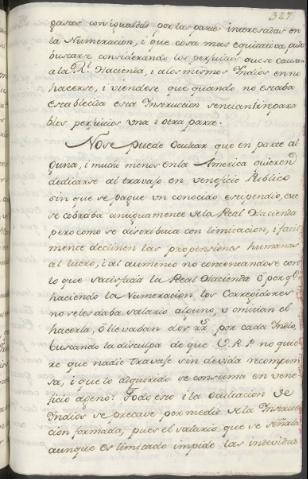 327
gasas con igualdad por las partes interesadas en
la Numeracion, i que cosa mas equitativa, puede
buscarse considerando los perjuicios que se causan
a la Rl. Hacienda, i a los mismos Indios en no
hacerse, i viendose que quando no estaba
establecida esta Instrucion sencuantinparables perjuicios una i otra parte.
No se puede dudar que en parte al
guna, i mucho menos en la America quieren
dedicarse al travajo en veneficio Publico
sin que se pague un conocido estipendio, este
se cobraba antiguamente de la Real Hacienda
pero como se distribuia con limitacion, i facil
mente declinen las propensiones humanas
al lucro, i al aumento no contentandose con
lo que satisfacia la Real Hacienda ó porqe.
haciendo la Numeracion los Corregidores
no se les daba salario alguno, u omitian el
hacerla, ó llevaban dos rrs. por cada Indio
buscando la disculpa de que V. R. P. no quie
re que nadie travaje sin devida recompen
sa, i que lo adquirido se consuma en vene
ficio ageno: Todo eso i la ocultacion de
Indios se precave por medio de la Instruc
cion formada, pues el salario que se señala
aunque es limitado impide las